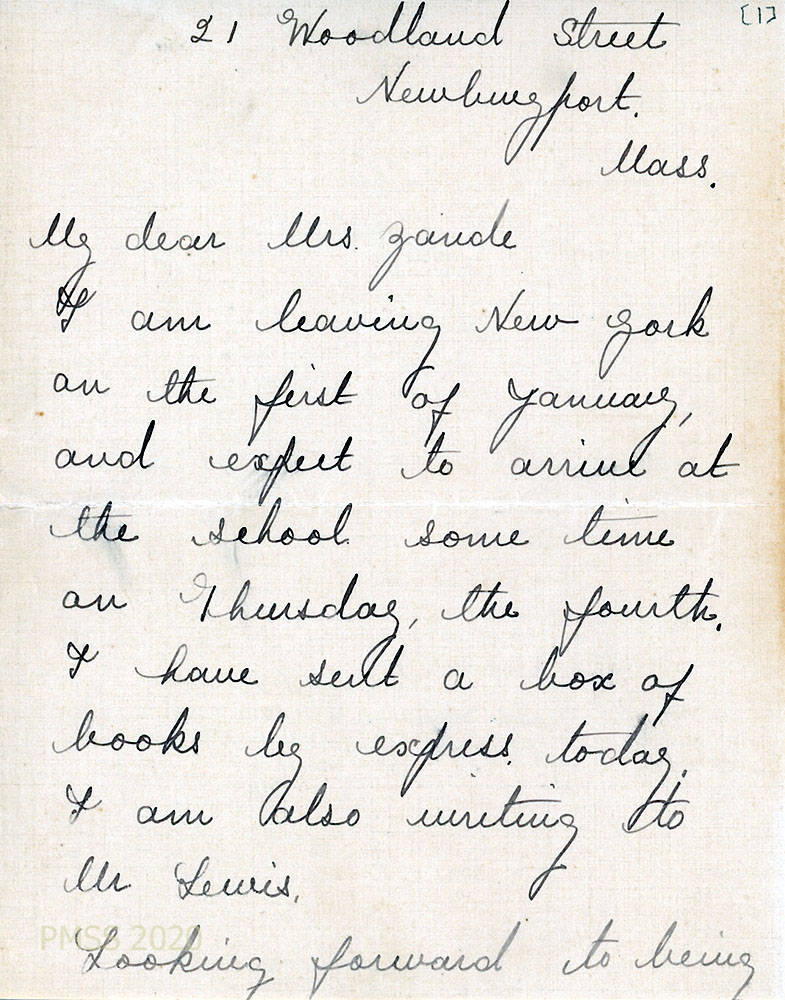 [1]
21 Woodland Street
Newburyport.
Mass.
My dear Mrs. Zande
I am leaving New York
on the first of January,
and expect to arrive at
the school some time
on Thursday, the fourth.
I have sent a box of
books by express today.
I am also writing to
Mr Lewis.
PMSS 2020
Looking forward to being